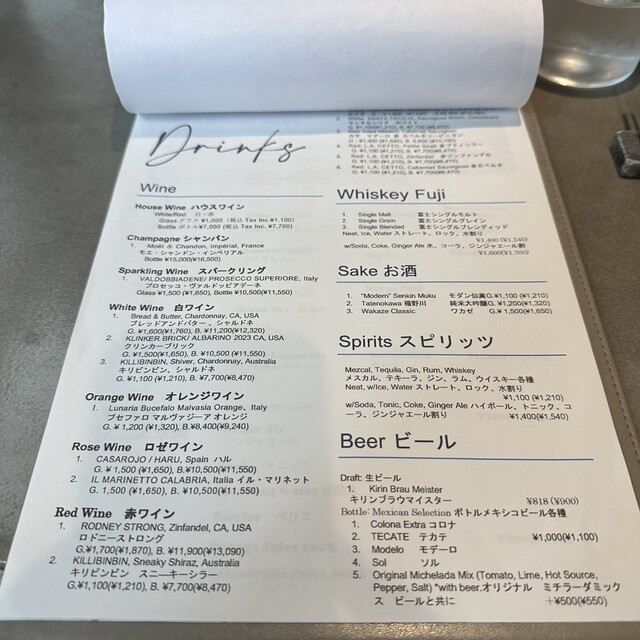 Drinks
Wine
House Wine ハウスワイン
White/Red 白・赤
Glass グラス ¥1,000 (税込 Tax Inc.¥1,100)
Bottle ボトル¥7,000 (税込 Tax Inc. ¥7,000)
Champagne シャンパン
1. Moët & Chandon, Impérial, France
モエ・シャンドン・インペリアル
Bottle ¥15,000(¥16,500)
Sparkling Wine スパークリング
1. VALDOBBIADENE/ PROSECCO SUPERIORE, Italy
プロセッコ・ヴァルドッビアデーネ
Glass ¥1,500 (¥1,650), Bottle ¥10,500(¥11,550)
White Wine 白ワイン
1. Bread & Butter, Chardonnay, CA, USA
ブレッドアンドバター、シャルドネ
G. ¥1,600(¥1,760), B. ¥11,200(¥12,320)
2. KLINKER BRICK/ ALBARINO 2023 CA, USA
クリンカーブリック
G. ¥1,500(¥1,650), B. ¥10,500 (¥11,550)
3. KILLIBINBIN, Shiver, Chardonnay, Australia
キリビンビン、シャルドネ
G. ¥1,100 (¥1,210), B. ¥7,700(¥8,470)
Orange Wine オレンジワイン
1. Lunaria Bucefalo Malvasia Orange、Italy
ブセファロ マルヴァジーア オレンジ
G. ¥ 1,200 (¥1,320), B.¥8,400(¥9,240)
Rose Wine ロゼワイン
1. CASAROJO / HARU, Spain ハル
G. ¥ 1,500 (¥1,650), B. ¥10,500(¥11,550)
2. IL MARINETTO CALABRIA, Italia イル・マリネット
G. 1,500 (¥1,650), B. ¥10,500(¥11,550)
Red Wine 赤ワイン
1. RODNEY STRONG, Zinfandel, CA, USA
ロドニーストロング
G.¥1,700(¥1,870), B. ¥11,900(¥13,090)
2. KILLIBINBIN, Sneaky Shiraz, Australia
キリビンビン スニーキーシラー
G.¥1,100(¥1,210), B. ¥7,700(¥8,470)
4. Red: L.A. CETTO, Petite Sirah 赤プティシラー
G. ¥1,100 (¥1,210), B. ¥7,700(¥8,470)
5. Red: L.A. CETTO, Zinfandel 赤ジンファンデル
G. ¥1,100 (¥1,210), B. ¥7,700(¥8,470)
6. Red: L.A. CETTO, Cabernet Sauvignon 赤カベルネ
G. ¥1,100 (¥1,210), B. ¥7,700(¥8,470)
Whiskey Fuji
1. Single Malt 富士シングルモルト
2. Single Grain 富士シングルグレイン
3. Single Blended 富士シングルブレンディッド
Neat, Ice, Water ストレート、ロック、水割り
¥1,400 (¥1,540)
w/Soda, Coke, Ginger Ale 水、コーラ、ジンジャエール割
¥1,600(¥1,760)
Sake お酒
1. "Modern" Senkin Muku モダン仙禽G.¥1,100 (¥1,210)
2. Tatenokawa 楯野川 純米大吟醸G. ¥1,200(¥1,320)
3. Wakaze Classic ワカゼ G. ¥1,500(¥1,650)
Spirits スピリッツ
Mezcal, Tequila, Gin, Rum, Whiskey
メスカル、テキーラ、ジン、ラム、ウイスキー各種
Neat, w/Ice, Water ストレート、ロック、水割り
¥1,100 (¥1,210)
w/Soda, Tonic, Coke, Ginger Ale ハイボール、トニック、コ
ーラ、ジンジャエール割り ¥1,400(¥1,540)
Beer ビール
Draft: 生ビール
1. Kirin Brau Meister
キリンブラウマイスター ¥818 (¥900)
Bottle: Mexican Selection ボトルメキシコビール各種
1. Colona Extra コロナ
2. TECATE テカテ ¥1,000(¥1,100)
3. Modelo モデーロ
4. Sol ソル
5. Original Michelada Mix (Tomato, Lime, Hot Source,
Pepper, Salt) *with beer.オリジナル ミチラーダミック
ス ビールと共に +¥500(¥550)